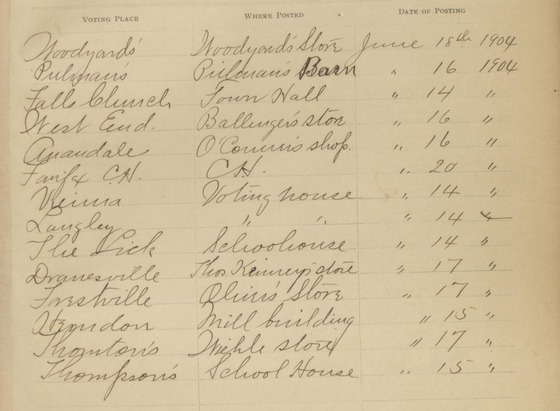 VOTING PLACE WHERE POSTED DATE OF POSTING
Woodyard's Woodyard's Store June 18th 1904
Pulman's Pulman's Barn " 16 1904
Falls Church Town Hall " 14 "
West End. Ballenger's store " 16 "
Anandale O'Conner's shop. " 16 "
Fairfx C.H. C.H. " 20 "
Vienna Voting house " 14 "
Langley " " " 14 "
The Lick Schoolhouse " 14 "
Dranesville Thos Kenney's store " 17 "
Forestville Store " 17 "
Herndon Mill building " 15 "
Thornton's Wiehle store " 17 "
Thompson's School House " 15 "